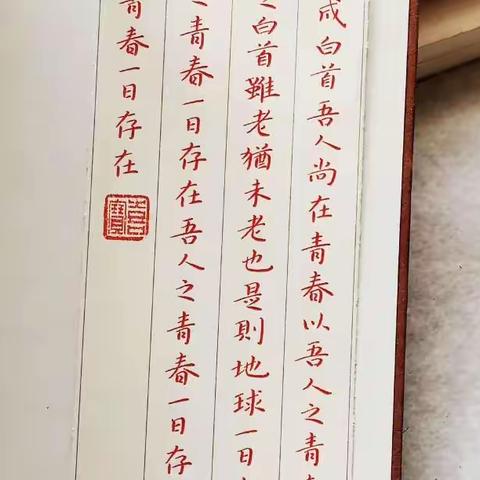 成白首吾人尚在青春以吾人之青春
之白首雖老猶未老也是則地球一日
之青春一日存在吾人之青春一日存
青春一日存在